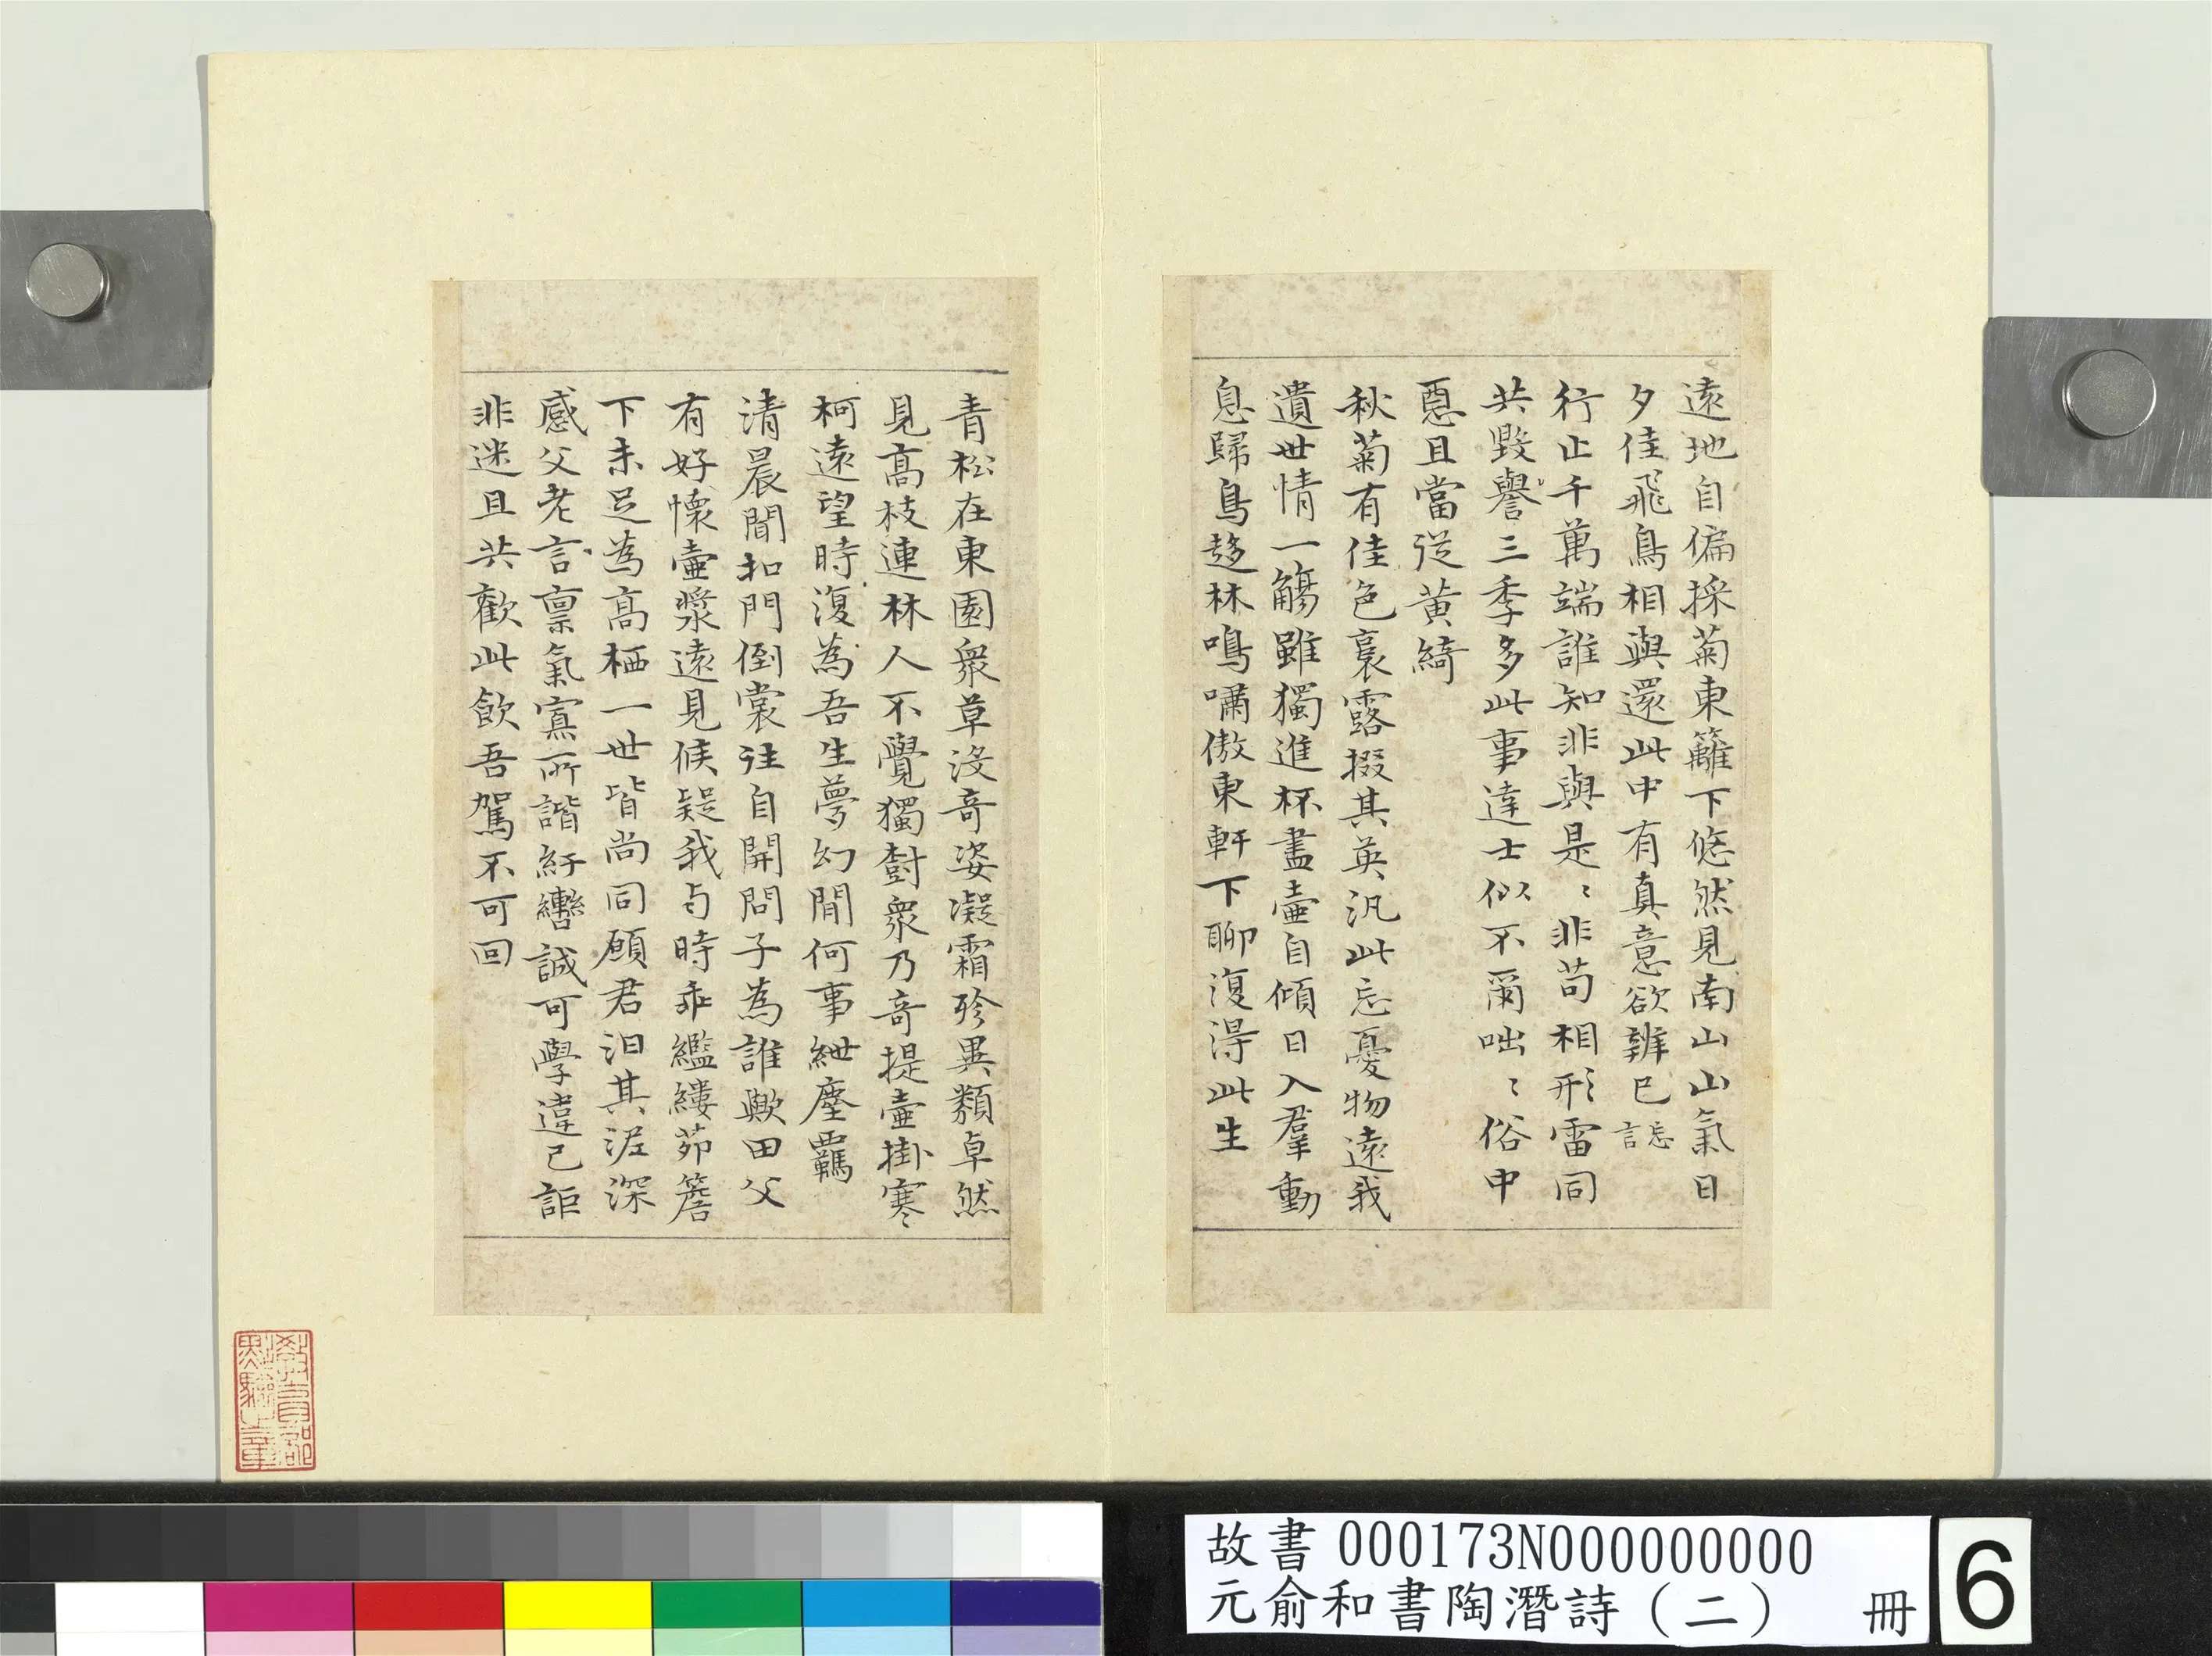 遠地自偏採菊東籬下悠然見南山山氣日
夕佳飛鳥相與還此中有真意欲辨已忘言
行止千萬端誰知非與是〻非苟相形雷同
共毀譽三季多此事達士似不爾咄〻俗中
惡且當從黃綺
秋菊有佳色裛露掇其英汎此忘憂物遠我
遺世情一觴雖獨進杯盡壺自傾日入羣動
息歸鳥趍林鳴嘯傲東軒下聊復淂此生
青松在東園衆草沒奇姿凝霜殄異類卓然
見髙枝連林人不覺獨樹衆乃奇提壺掛寒
柯遠望時復為吾生夢幻間何事紲塵羈
清晨聞扣門倒裳往自開問子為誰歟田父
有好懷壺漿遠見候疑我与時乖繿縷茆簷
下未足為髙栖一世皆尚同願君汩其泥深
感父老言禀氣寡所諧紆轡誠可學違己詎
非迷且共歡此飲吾駕不可回
教育部
點驗之章
故書 000173N000000000
元俞和書陶潛詩（二） 冊
6